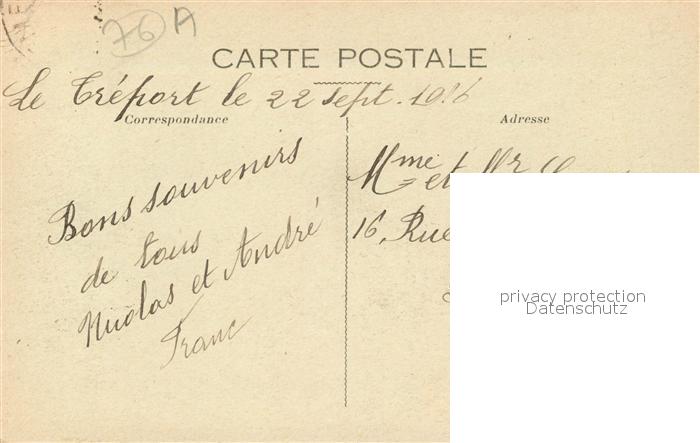 76 A
CARTE POSTALE
Le Tréport le 22 Sept. 1916
Correspondance
Adresse
Bons souvenirs
de tous
Nicolas et André
Franc
Mme et Mr
16, Rue
privacy protection
Datenschutz